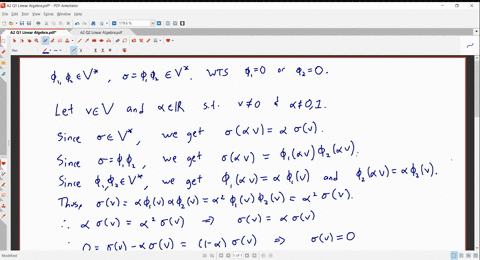 A2 Q1 Linear Algebra.pdf* - PDF Annotator
File Edit View Insert Tool Window Help
A2 Q1 Linear Algebra.pdf* A2 Q2 Linear Algebra.pdf*
ϕ₁, ϕ₂ ∈ V*, σ = ϕ₁ϕ₂ ∈ V*. WTS ϕ₁=0 or ϕ₂=0.
Let v∈V and α∈ℝ s.t. v≠0 & α≠0,1.
Since σ∈V*, we get σ(αv) = α σ(v).
Since σ=ϕ₁ϕ₂, we get σ(αv) = ϕ₁(αv)ϕ₂(αv).
Since ϕ₁,ϕ₂∈V*, we get ϕ₁(αv)=αϕ₁(v) and ϕ₂(αv)=αϕ₂(v).
Thus, σ(αv) = αϕ₁(v)αϕ₂(v) = α²ϕ₁(v)ϕ₂(v) = α²σ(v).
∴ ασ(v) = α²σ(v) ⇒ σ(v) = ασ(v)
∴ 0 = σ(v) - ασ(v) = (1-α)σ(v) ⇒ σ(v)=0
Modified
1 of 1